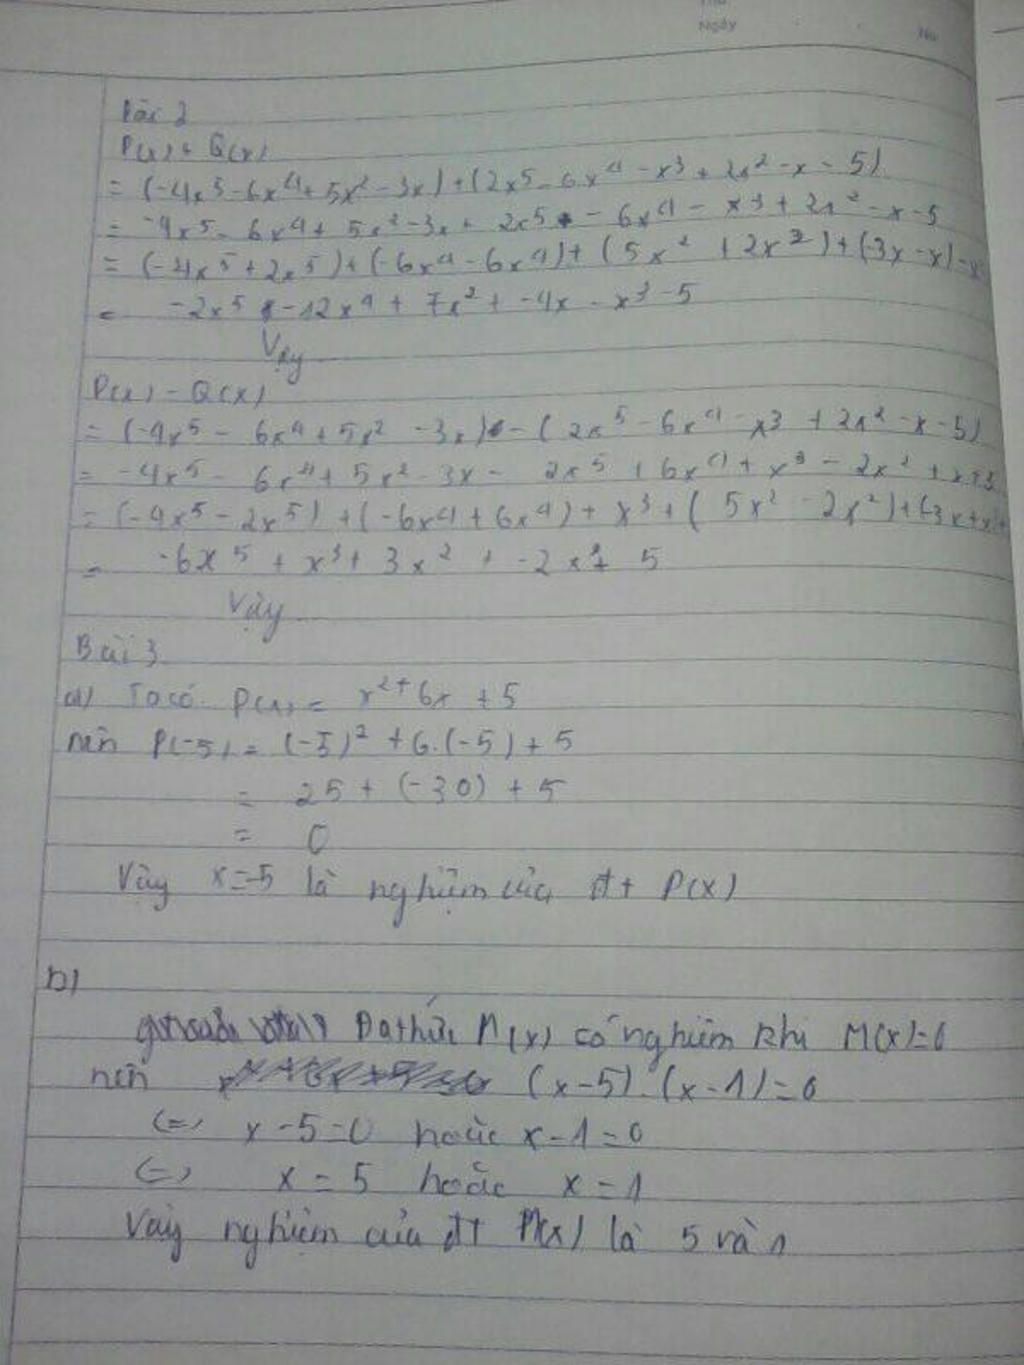 Thứ
Ngày No
Bài 2
P(x) + Q(x)
= (-4x5 - 6x4 + 5x2 - 3x) + (2x5 - 6x4 - x3 + 2x2 - x - 5)
= -4x5 - 6x4 + 5x2 - 3x + 2x5 - 6x4 - x3 + 2x2 - x - 5
= (-4x5 + 2x5) + (-6x4 - 6x4) + (5x2 + 2x2) + (-3x - x) -
= -2x5 -12x4 + 7x2 + -4x - x3 - 5
Vậy
P(x) - Q(x)
= (-4x5 - 6x4 + 5x2 - 3x) - (2x5 - 6x4 - x3 + 2x2 - x - 5)
= -4x5 - 6x4 + 5x2 - 3x - 2x5 + 6x4 + x3 - 2x2 + x + 5
= (-4x5 - 2x5) + (-6x4 + 6x4) + x3 + (5x2 - 2x2) + (-3x + x) +
= -6x5 + x3 + 3x2 + -2x + 5
Vậy
Bài 3
a) Ta có P(x) = x2 + 6x + 5
nên P(-5) = (-5)2 + 6.(-5) + 5
= 25 + (-30) + 5
= 0
Vậy x = -5 là nghiệm của đt P(x)
b)
Đa thức M(x) có nghiệm khi M(x) = 0
nên (x-5).(x-1) = 0
(=) x - 5 = 0 hoặc x - 1 = 0
(=) x = 5 hoặc x = 1
Vậy nghiệm của đt M(x) là 5 và 1